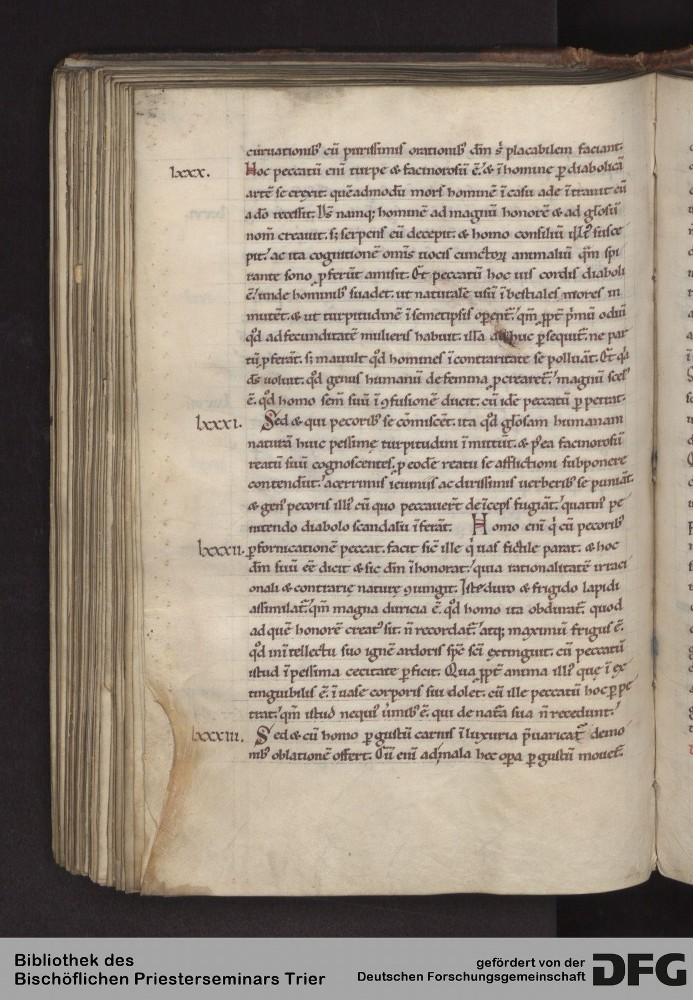 curuationib' cū purissimis orationib' dm̄ s̄ placabilem faciant.
lxxx. Hoc peccatū eni turpe & facinorosū ē. & ī homine ꝑ diabolicā
artē se erexit. quēadmodū mors hominē ī casu ade ītrauit cū
a dō recessit. Ds̄ namq; hominē ad magnū honorē & ad gl'osū
nom̄ creauit. s; serpens eū decepit. & homo consiliū illi' susce
pit. ac ita cognitionē om̄is uocis cunctoꝝ animaliū qm̄ spi
rante sono ꝓferūt amisit. Et peccatū hoc uis cordis diaboli
ē. unde hominib' suadet. ut naturalē usū ī bestiales mores in
mutēt. & ut turpitudinē ī semetipsis oꝑent. qm̄ ꝓpt̄ p̄mū odiū
qd̄ ad fecunditatē mulieris habuit. illā adhuc ꝑsequit̄. ne par
tū ꝓferāt. s; mauult qd̄ homines ī contrarietate se polluāt. Et qa
ds̄ uoluit. qd̄ genus humanū de femina ꝓcrearet̄. magnū scel'
ē. qd̄ homo sem̄ suū ī ꝯfusionē ducit. cū idē peccatū ꝑpetrat.
lxxxi. Sed & qui pecorib' se cōmiscēt. ita qd̄ gl'osam humanam
naturā huic pessimę turpitudini īmittūt. & p' ea facinorosū
reatū suū cognoscentes. ꝑ eodē reatu se afflictioni subponere
contendūt. acerrimis ieiuniis ac durissimis uerberib' se puniāt.
& gen' pecoris illi' cū quo peccauert̄ deīceps fugiāt. quatin' pe
nitendo diabolo scandalū īferāt. Homo eni q̇ cū pecorib'
lxxxii. ꝑ fornicationē peccat. facit sic̄ ille q̇ uas fictile parat. & hoc
dm̄ suū eē dicit & sic dm̄ īhonorat. quia rationalitatē irraci
onali & contrarie naturę ꝯiungit. Iste duro & frigido lapidi
assimilat̄. qm̄ magna duricia ē. qd̄ homo ita obdurat̄. quod
ad quē honorē creat' sit. n̄ recordat̄. atq; maximū frigus ē.
qd̄ in ītellectu suo ignē ardoris sp̄c sc̄i extinguit. cū peccatū
istud ī pessima cecitate ꝑficit. Qua ꝓpt̄ anima illi' quę ī ex
tinguibilis ē. ī uase corporis sui dolet. cū ille peccatū hoc ꝑpe
trat. qm̄ istud nequi' umib' ē. qui de nat̄a sua n̄ recedunt.
lxxxiii. Sed & cū homo ꝑ gustū carnis ī luxuria p̄uaricat̄ demo
nib' oblationē offert. Cū eni ad mala hec oꝑa ꝑ gustū mouet̄.
Bibliothek des
Bischöflichen Priesterseminars Trier
gefördert von der
Deutschen Forschungsgemeinschaft
DFG